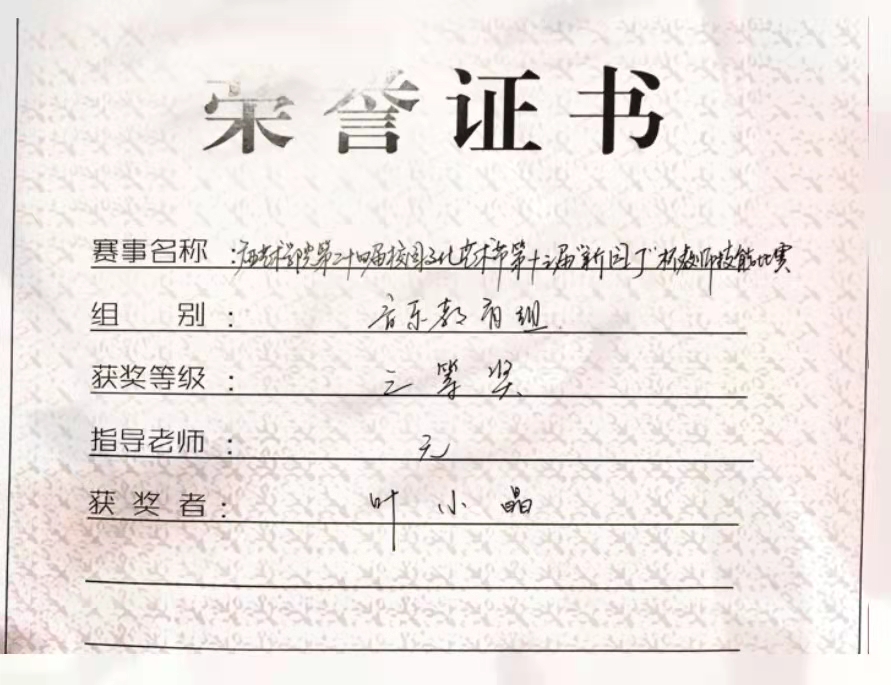 荣誉证书
赛事名称：艺术学院第二十四届校园文化艺术节第十三届"新园丁"杯教师技能比赛
组别：音乐教育组
获奖等级：三等奖
指导老师：无
获奖者：叶小晶